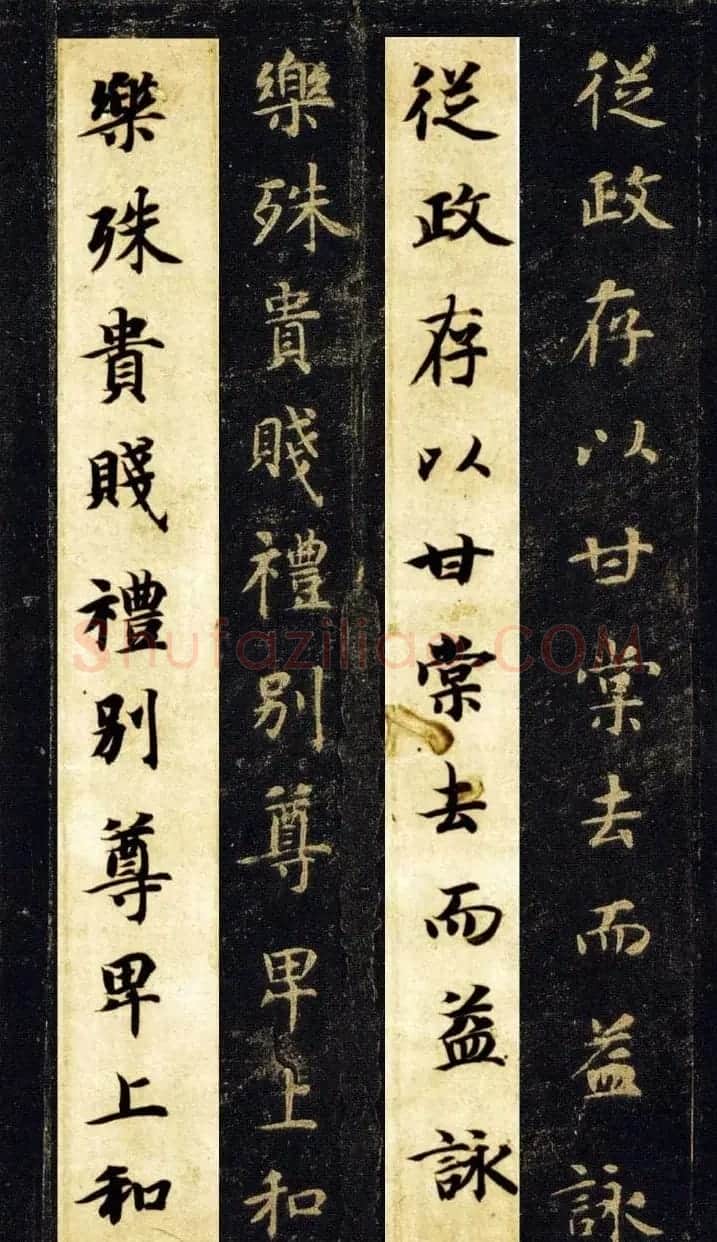 從政存以甘棠去而益詠
從政存以甘棠去而益詠
樂殊貴賤禮別尊卑上和
樂殊貴賤禮別尊卑上和
Shufaziliao.COM